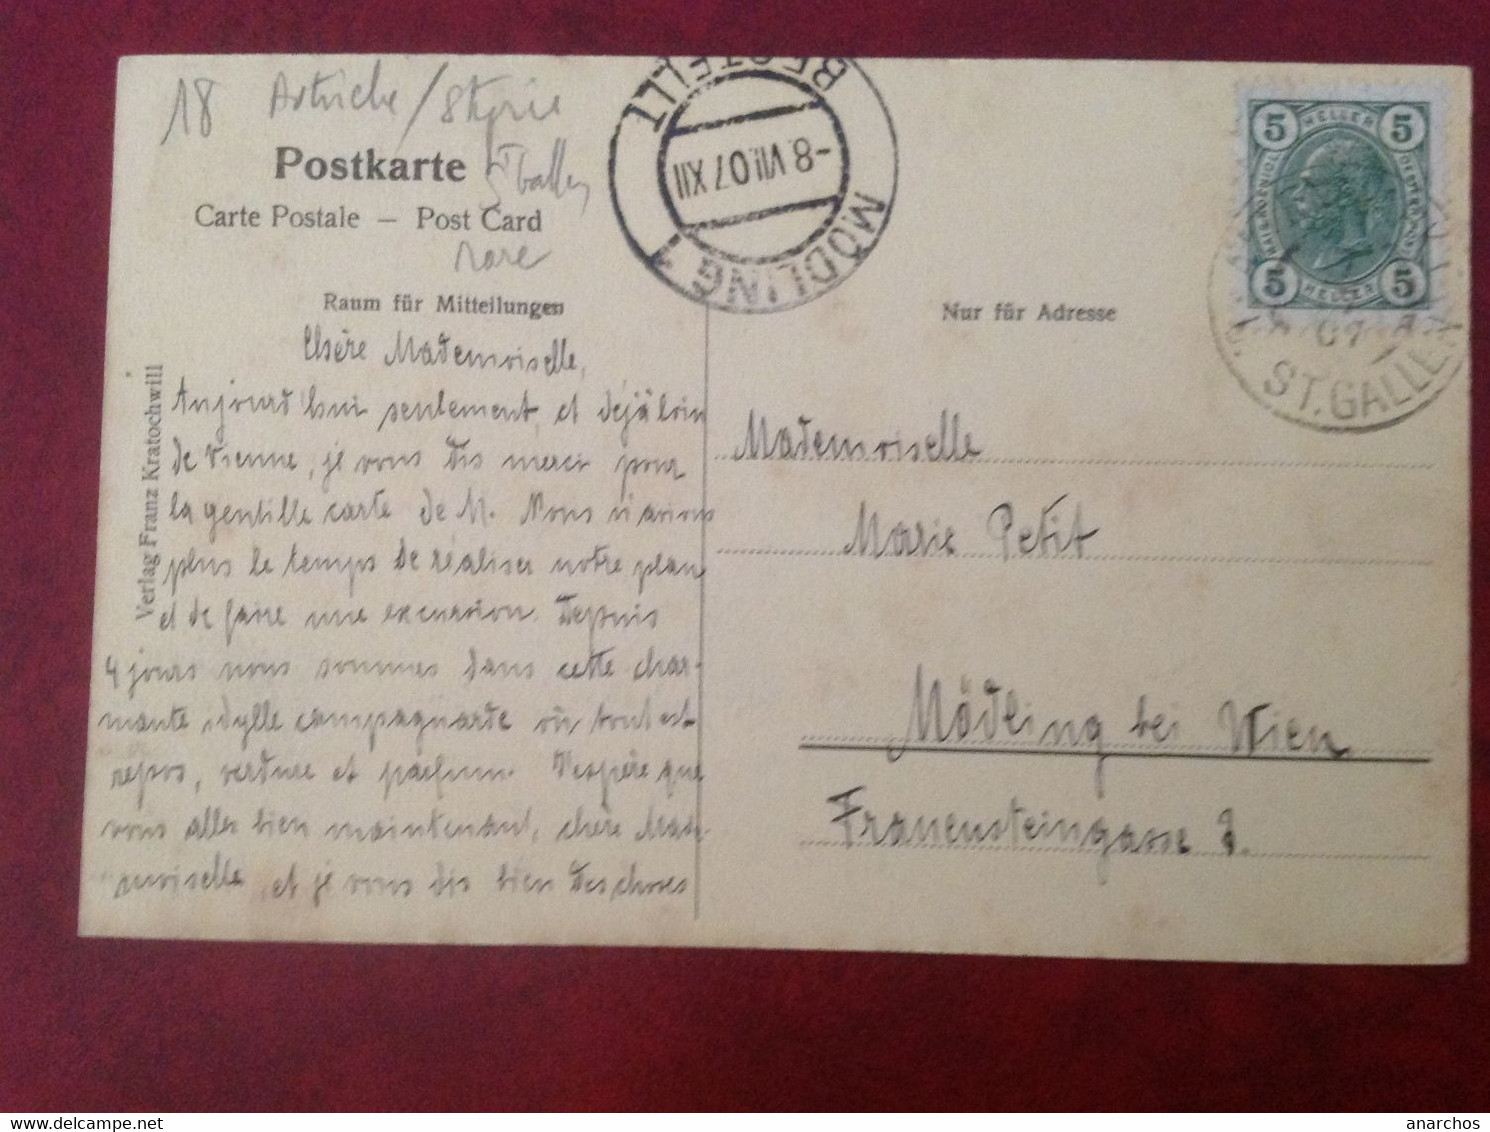 18 Autriche / Styrie
St Gallen
rare
Postkarte
Carte Postale — Post Card
Raum für Mitteilungen
Nur für Adresse
Verlag Franz Kratochwill
BESTELLT
-8.VII.07 XII
MÖDLING 1
5 HELLER 5
5 HELLER 5
ST. GALLEN
07
Chère Mademoiselle,
Aujourd'hui seulement, et déjà loin
de Vienne, je vous dis merci pour
la gentille carte de M. Nous n'avions
plus le temps de réaliser notre plan
et de faire une excursion. Depuis
4 jours nous sommes dans cette char-
mante idylle campagnarde où tout est
repos, verdure et parfum. J'espère que
vous allez bien maintenant, chère Made-
moiselle, et je vous dis bien des choses
Mademoiselle
Marie Petit
Mödling bei Wien
Frauensteingasse 3.
www.delcampe.net
anarchos